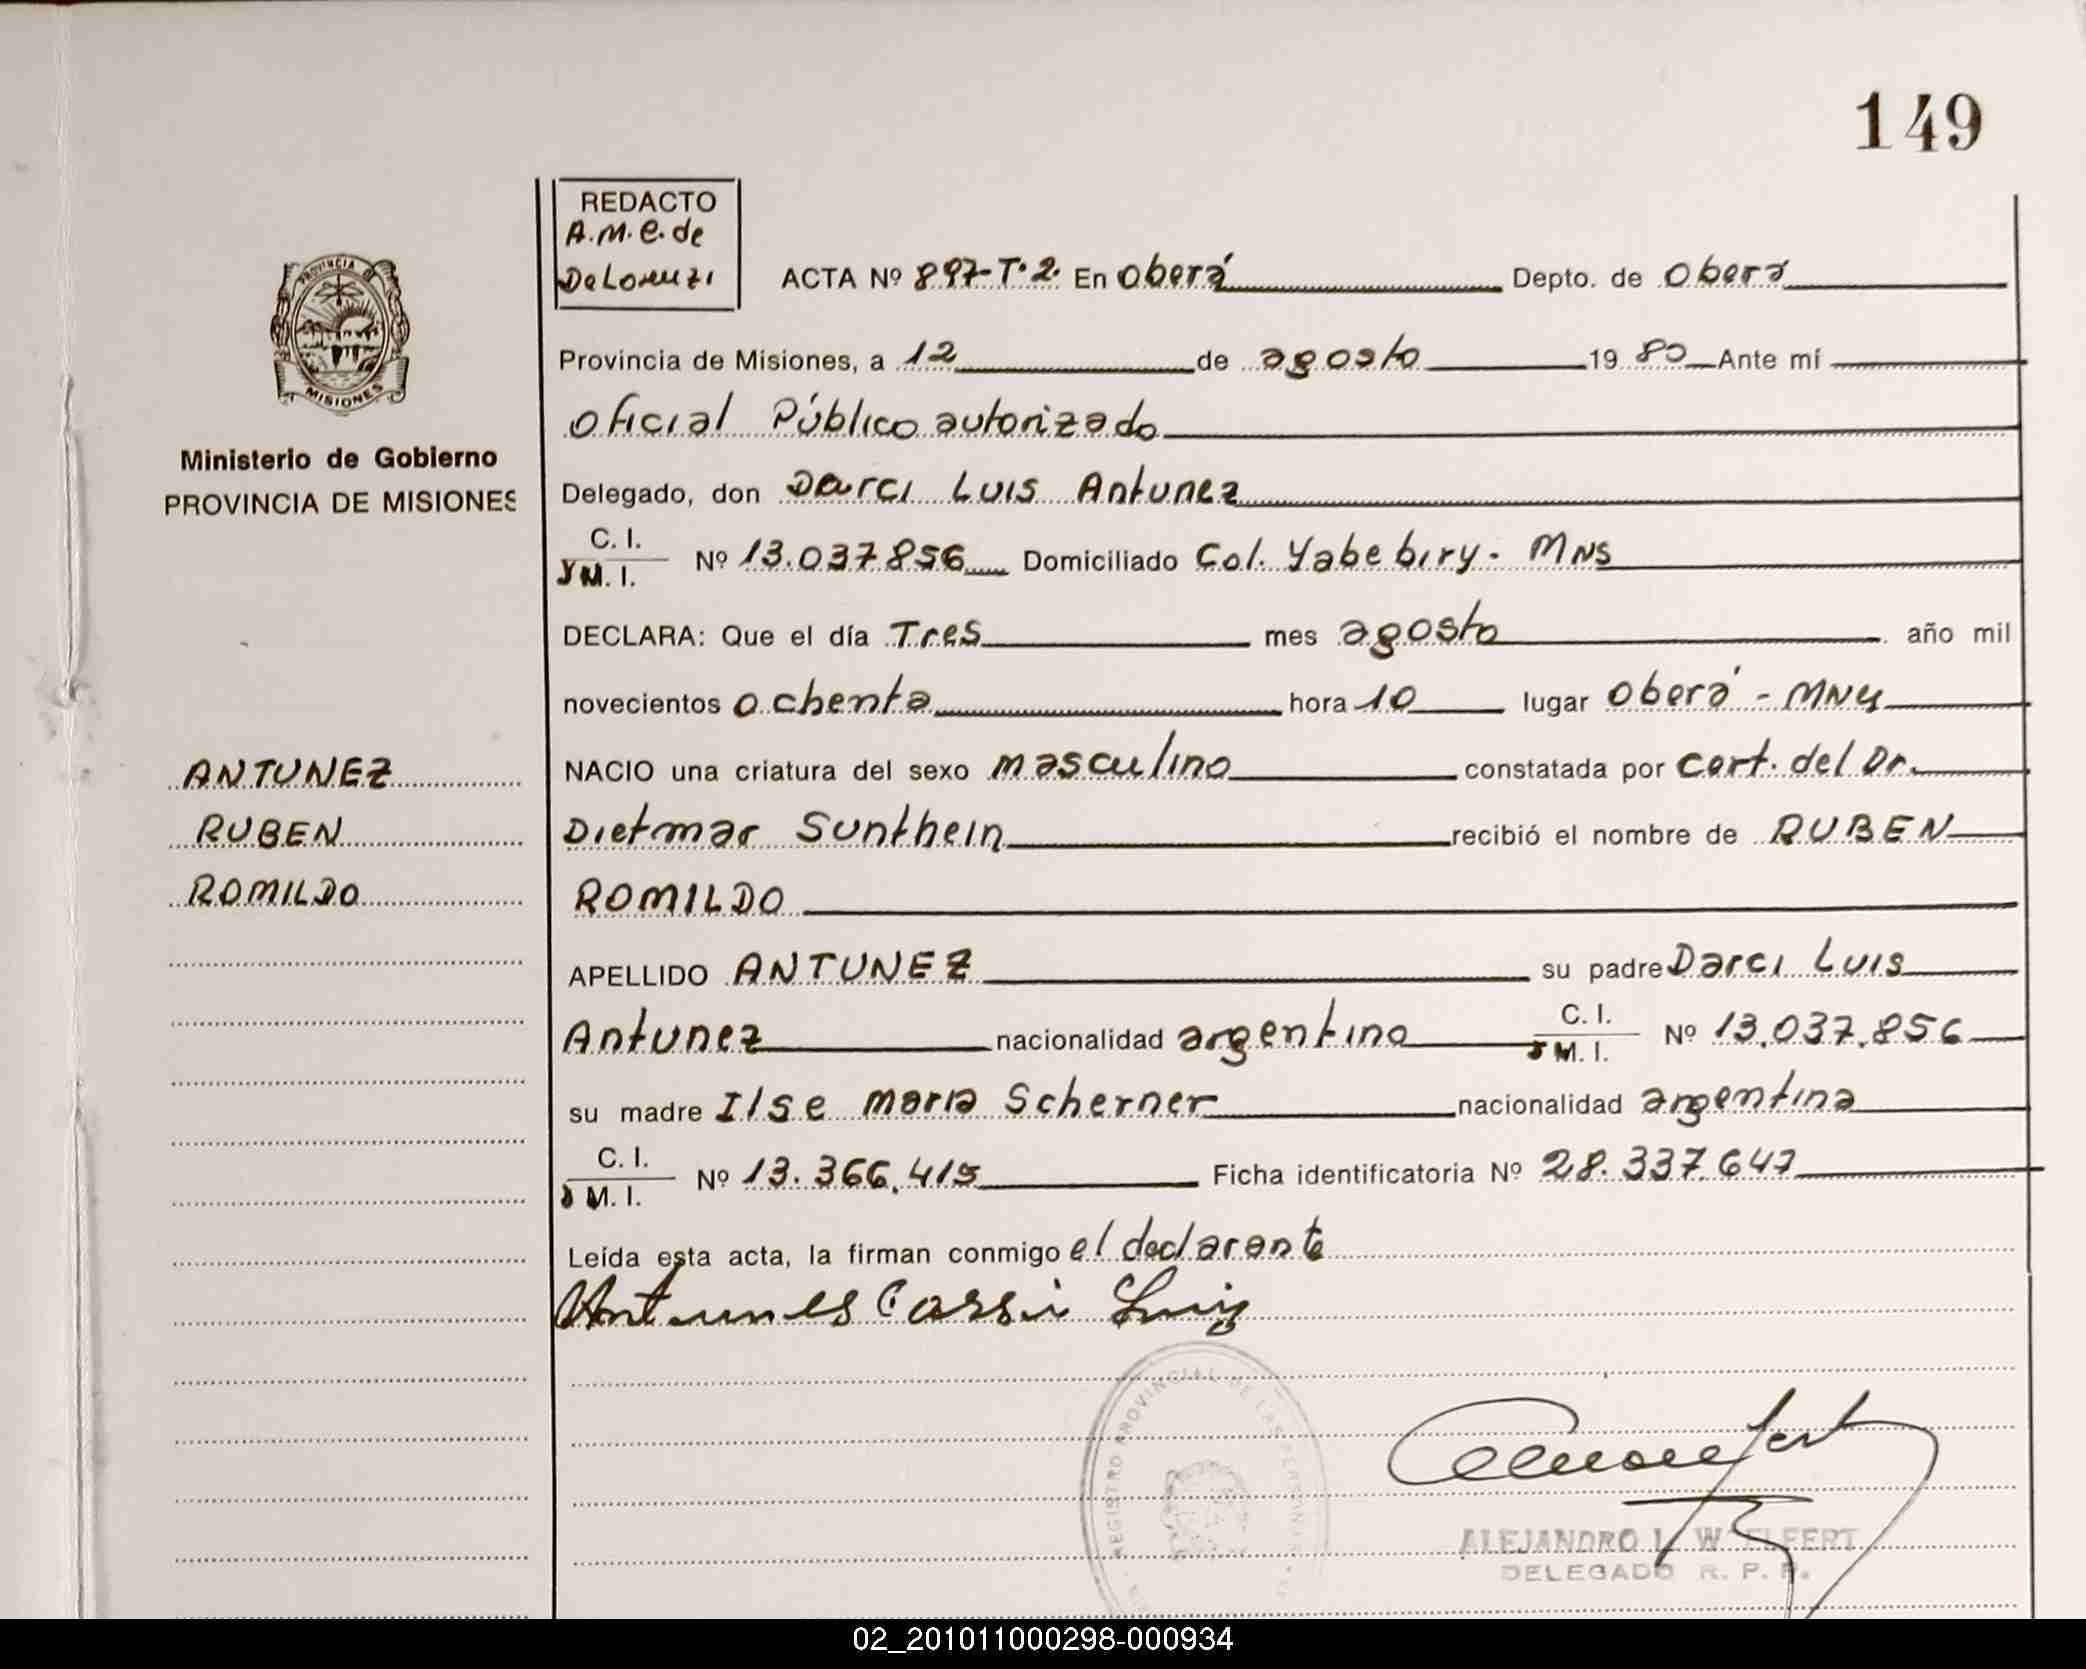 149
REDACTO
A.M.C. de
DeLorenzi
ACTA Nº 897-T.2. En Oberá Depto. de Oberá
PROVINCIA DE
MISIONES
Provincia de Misiones, a 12 de agosto 1980 Ante mí
Oficial Público autorizado
Ministerio de Gobierno
PROVINCIA DE MISIONES
Delegado, don Darci Luis Antunez
C. I.
M. I. Nº 13.037.856 Domiciliado Col. Yabebiry - Mns
DECLARA: Que el día Tres mes agosto año mil
novecientos ochenta hora 10 lugar Oberá - Mns
ANTUNEZ
RUBEN
ROMILDO
NACIO una criatura del sexo masculino constatada por Cert. del Dr.
Dietmar Sunthein recibió el nombre de RUBEN
ROMILDO
APELLIDO ANTUNEZ su padre Darci Luis
Antunez nacionalidad argentino C. I. M. I. Nº 13.037.856
su madre Ilse Maria Scherner nacionalidad argentina
C. I.
M. I. Nº 13.366.415 Ficha identificatoria Nº 28.337.647
Leída esta acta, la firman conmigo el declarante
Antunes Luiz
REGISTRO PROVINCIAL DE LAS PERSONAS
ALEJANDRO L. W
DELEGADO R. P. P.
02_201011000298-000934